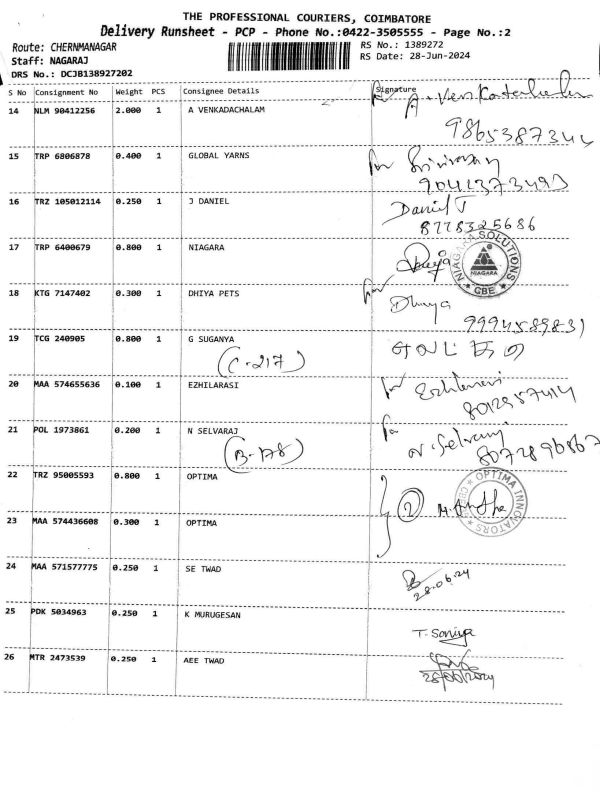 THE PROFESSIONAL COURIERS, COIMBATORE
Delivery Runsheet - PCP - Phone No.:0422-3505555 - Page No.:2
Route: CHERNMANAGAR
RS No.: 1389272
Staff: NAGARAJ
RS Date: 28-Jun-2024
DRS No.: DCJB138927202
S No Consignment No Weight PCS Consignee Details Signature
14 NLM 90412256 2.000 1 A VENKADACHALAM
9865387344
15 TRP 6806878 0.400 1 GLOBAL YARNS for
9042373493
16 TRZ 105012114 0.250 1 J DANIEL Daniel J
8778325686
17 TRP 6400679 0.800 1 NIAGARA
NIAGARA SOLUTIONS
NIAGARA
CBE
18 KTG 7147402 0.300 1 DHIYA PETS for Dhuya
9994589831
19 TCG 240905 0.800 1 G SUGANYA
(C-217)
20 MAA 574655636 0.100 1 EZHILARASI for
8012957414
21 POL 1973861 0.200 1 N SELVARAJ for N. Selvaraj
(B-178) 8072896867
22 TRZ 95005593 0.800 1 OPTIMA
2
OPTIMA INNOVATORS
23 MAA 574436608 0.300 1 OPTIMA
24 MAA 571577775 0.250 1 SE TWAD
28.06.24
25 PDK 5034963 0.250 1 K MURUGESAN
T. Soniya
26 MTR 2473539 0.250 1 AEE TWAD
28/06/2024